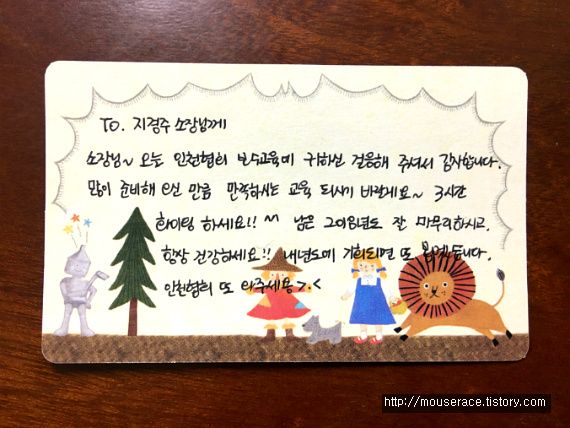 To. 지경주 소장님께
소장님~ 오늘 인천협회 보수교육에 귀하신 걸음해 주셔서 감사합니다.
많이 준비해 오신 만큼 만족하시는 교육 되시기 바랄게요~ 3시간
화이팅 하세요!! ^^ 남은 2018년도 잘 마무리하시고,
항상 건강하세요!! 내년도에 기회되면 또 뵙겠습니다.
인천협회 또 와주세용 > <
http://mouserace.tistory.com